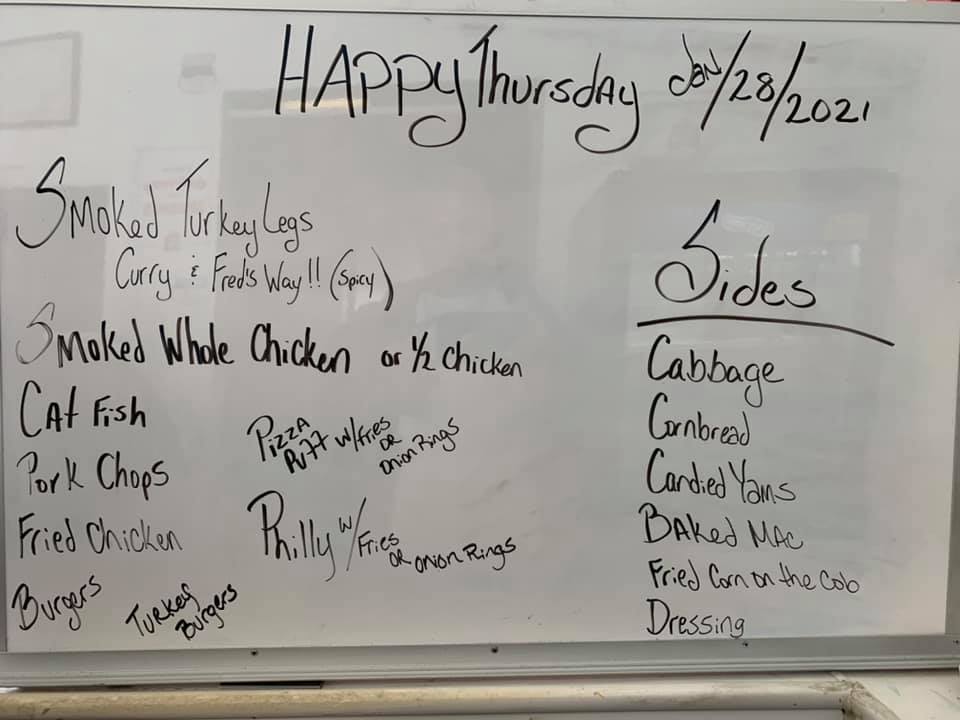 HAPPY Thursday Jan/28/2021
Smoked Turkey Legs
Curry & Fred's Way!! (Spicy)
Smoked Whole Chicken or 1/2 Chicken
Cat Fish
Pork Chops
Fried Chicken
Burgers
Turkey
Burgers
Pizza
Puff w/fries
OR
Onion Rings
Philly w/Fries
OR Onion Rings
Sides
Cabbage
Cornbread
Candied Yams
Baked Mac
Fried Corn on the Cob
Dressing